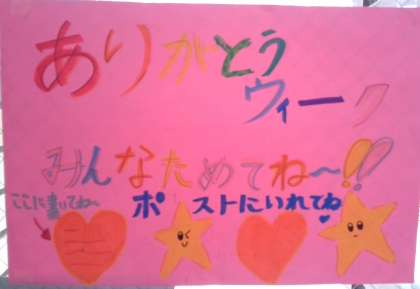 ありがとう
ウィーク
みんなためてね〜!!
ここに書いてね〜
ポストにいれてね